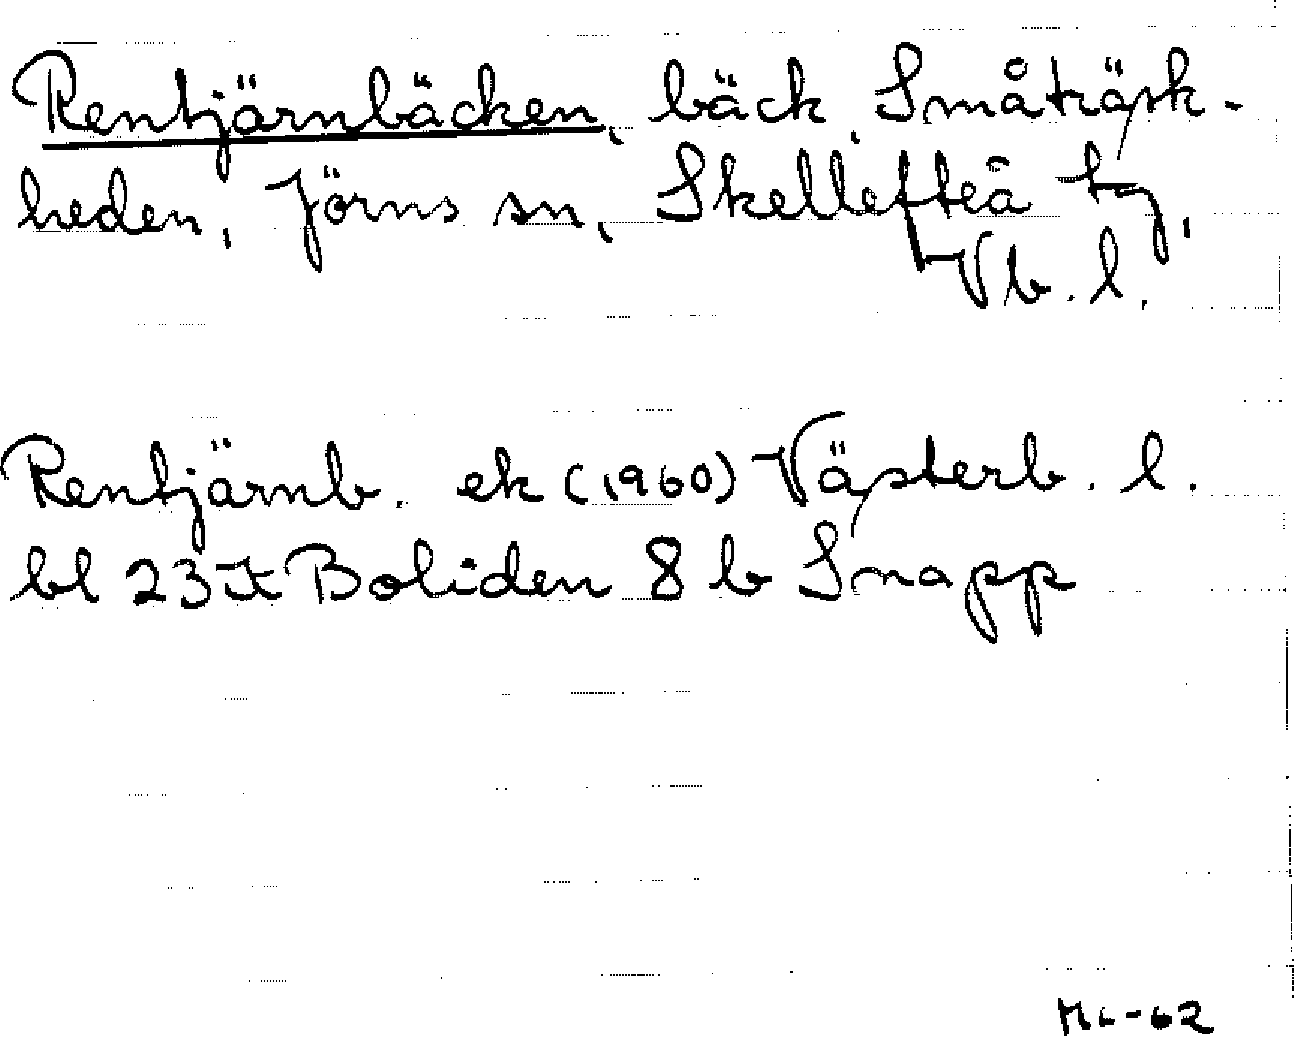 Rentjärnbäcken, bäck, Småträsk-
heden, Jörns sn, Skellefteå tg,
Vb. l.
Rentjärnb. ek (1960) Västerb. l.
bl 23 K Boliden 8 b Snapp
-62